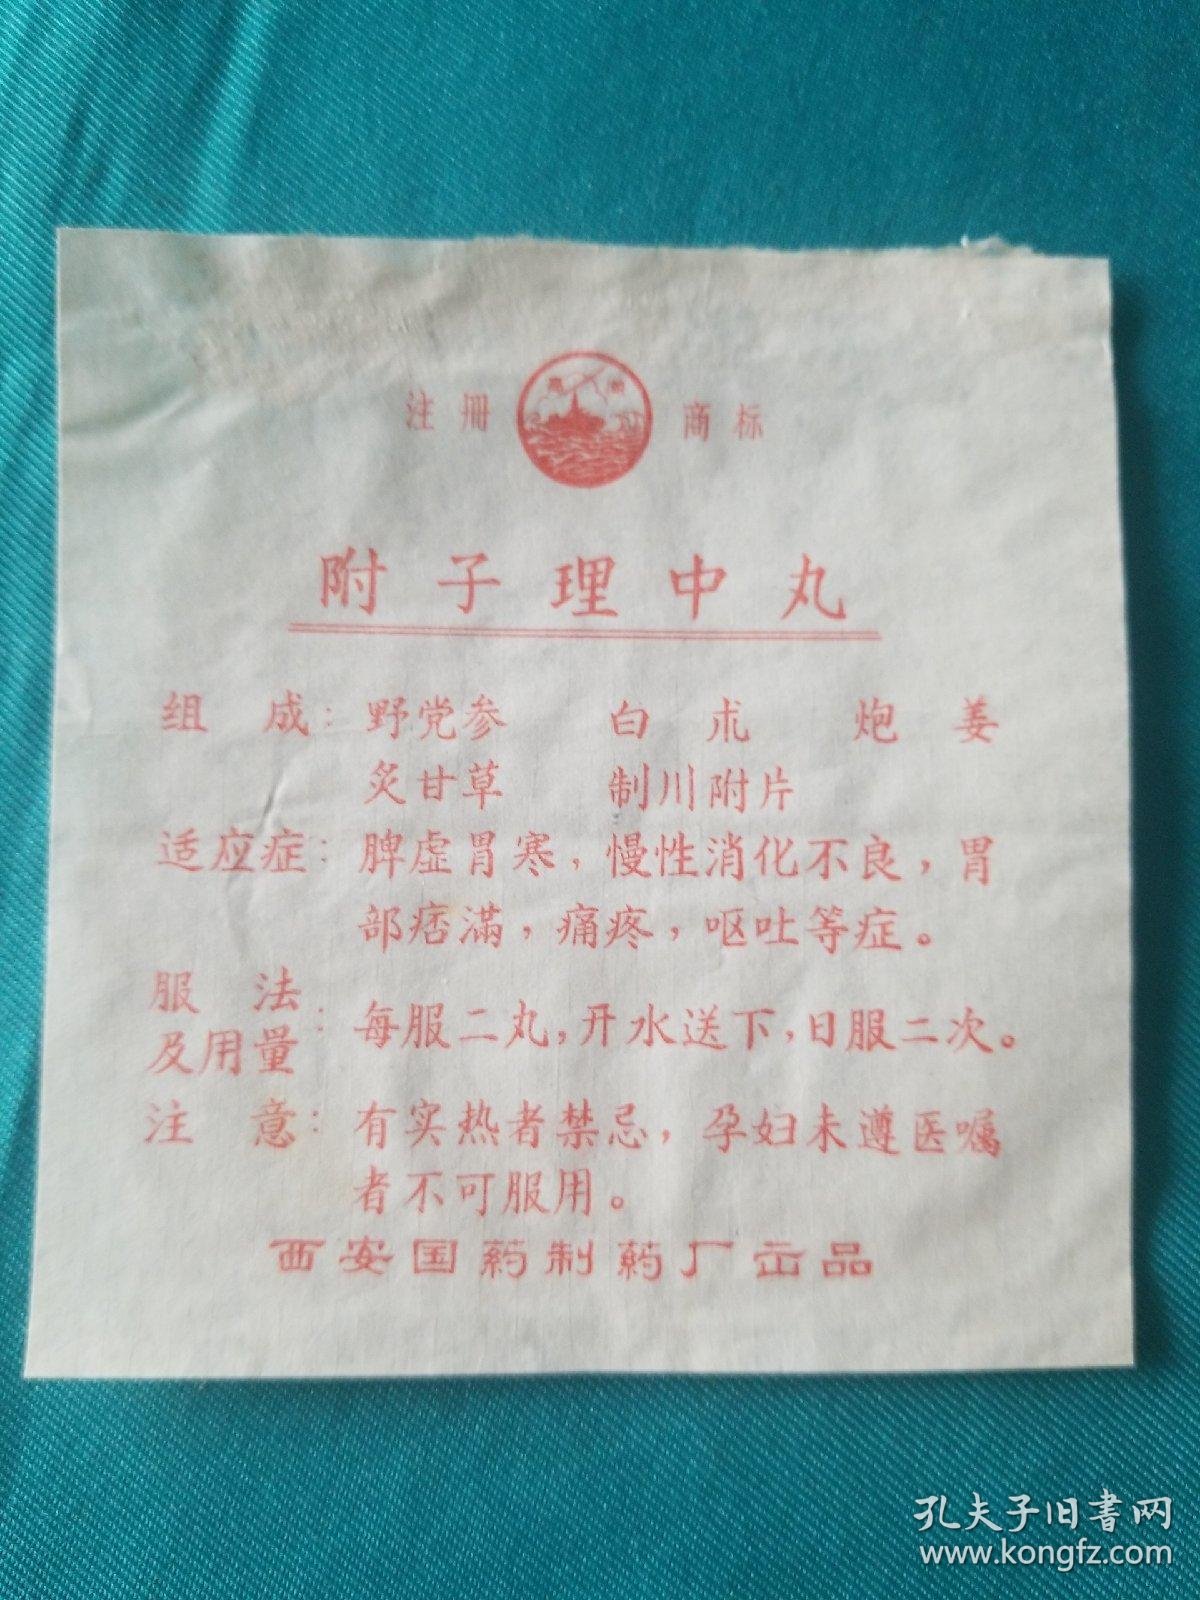 注册 商标
附子理中丸
组 成：野党参 白 朮 炮 姜
炙甘草 制川附片
适应症：脾虚胃寒，慢性消化不良，胃
部痞滿，痛疼，呕吐等症。
服 法
及用量：每服二丸，开水送下，日服二次。
注 意：有实热者禁忌，孕妇未遵医嘱
者不可服用。
西安国药制药厂出品
孔夫子旧書网
www.kongfz.com